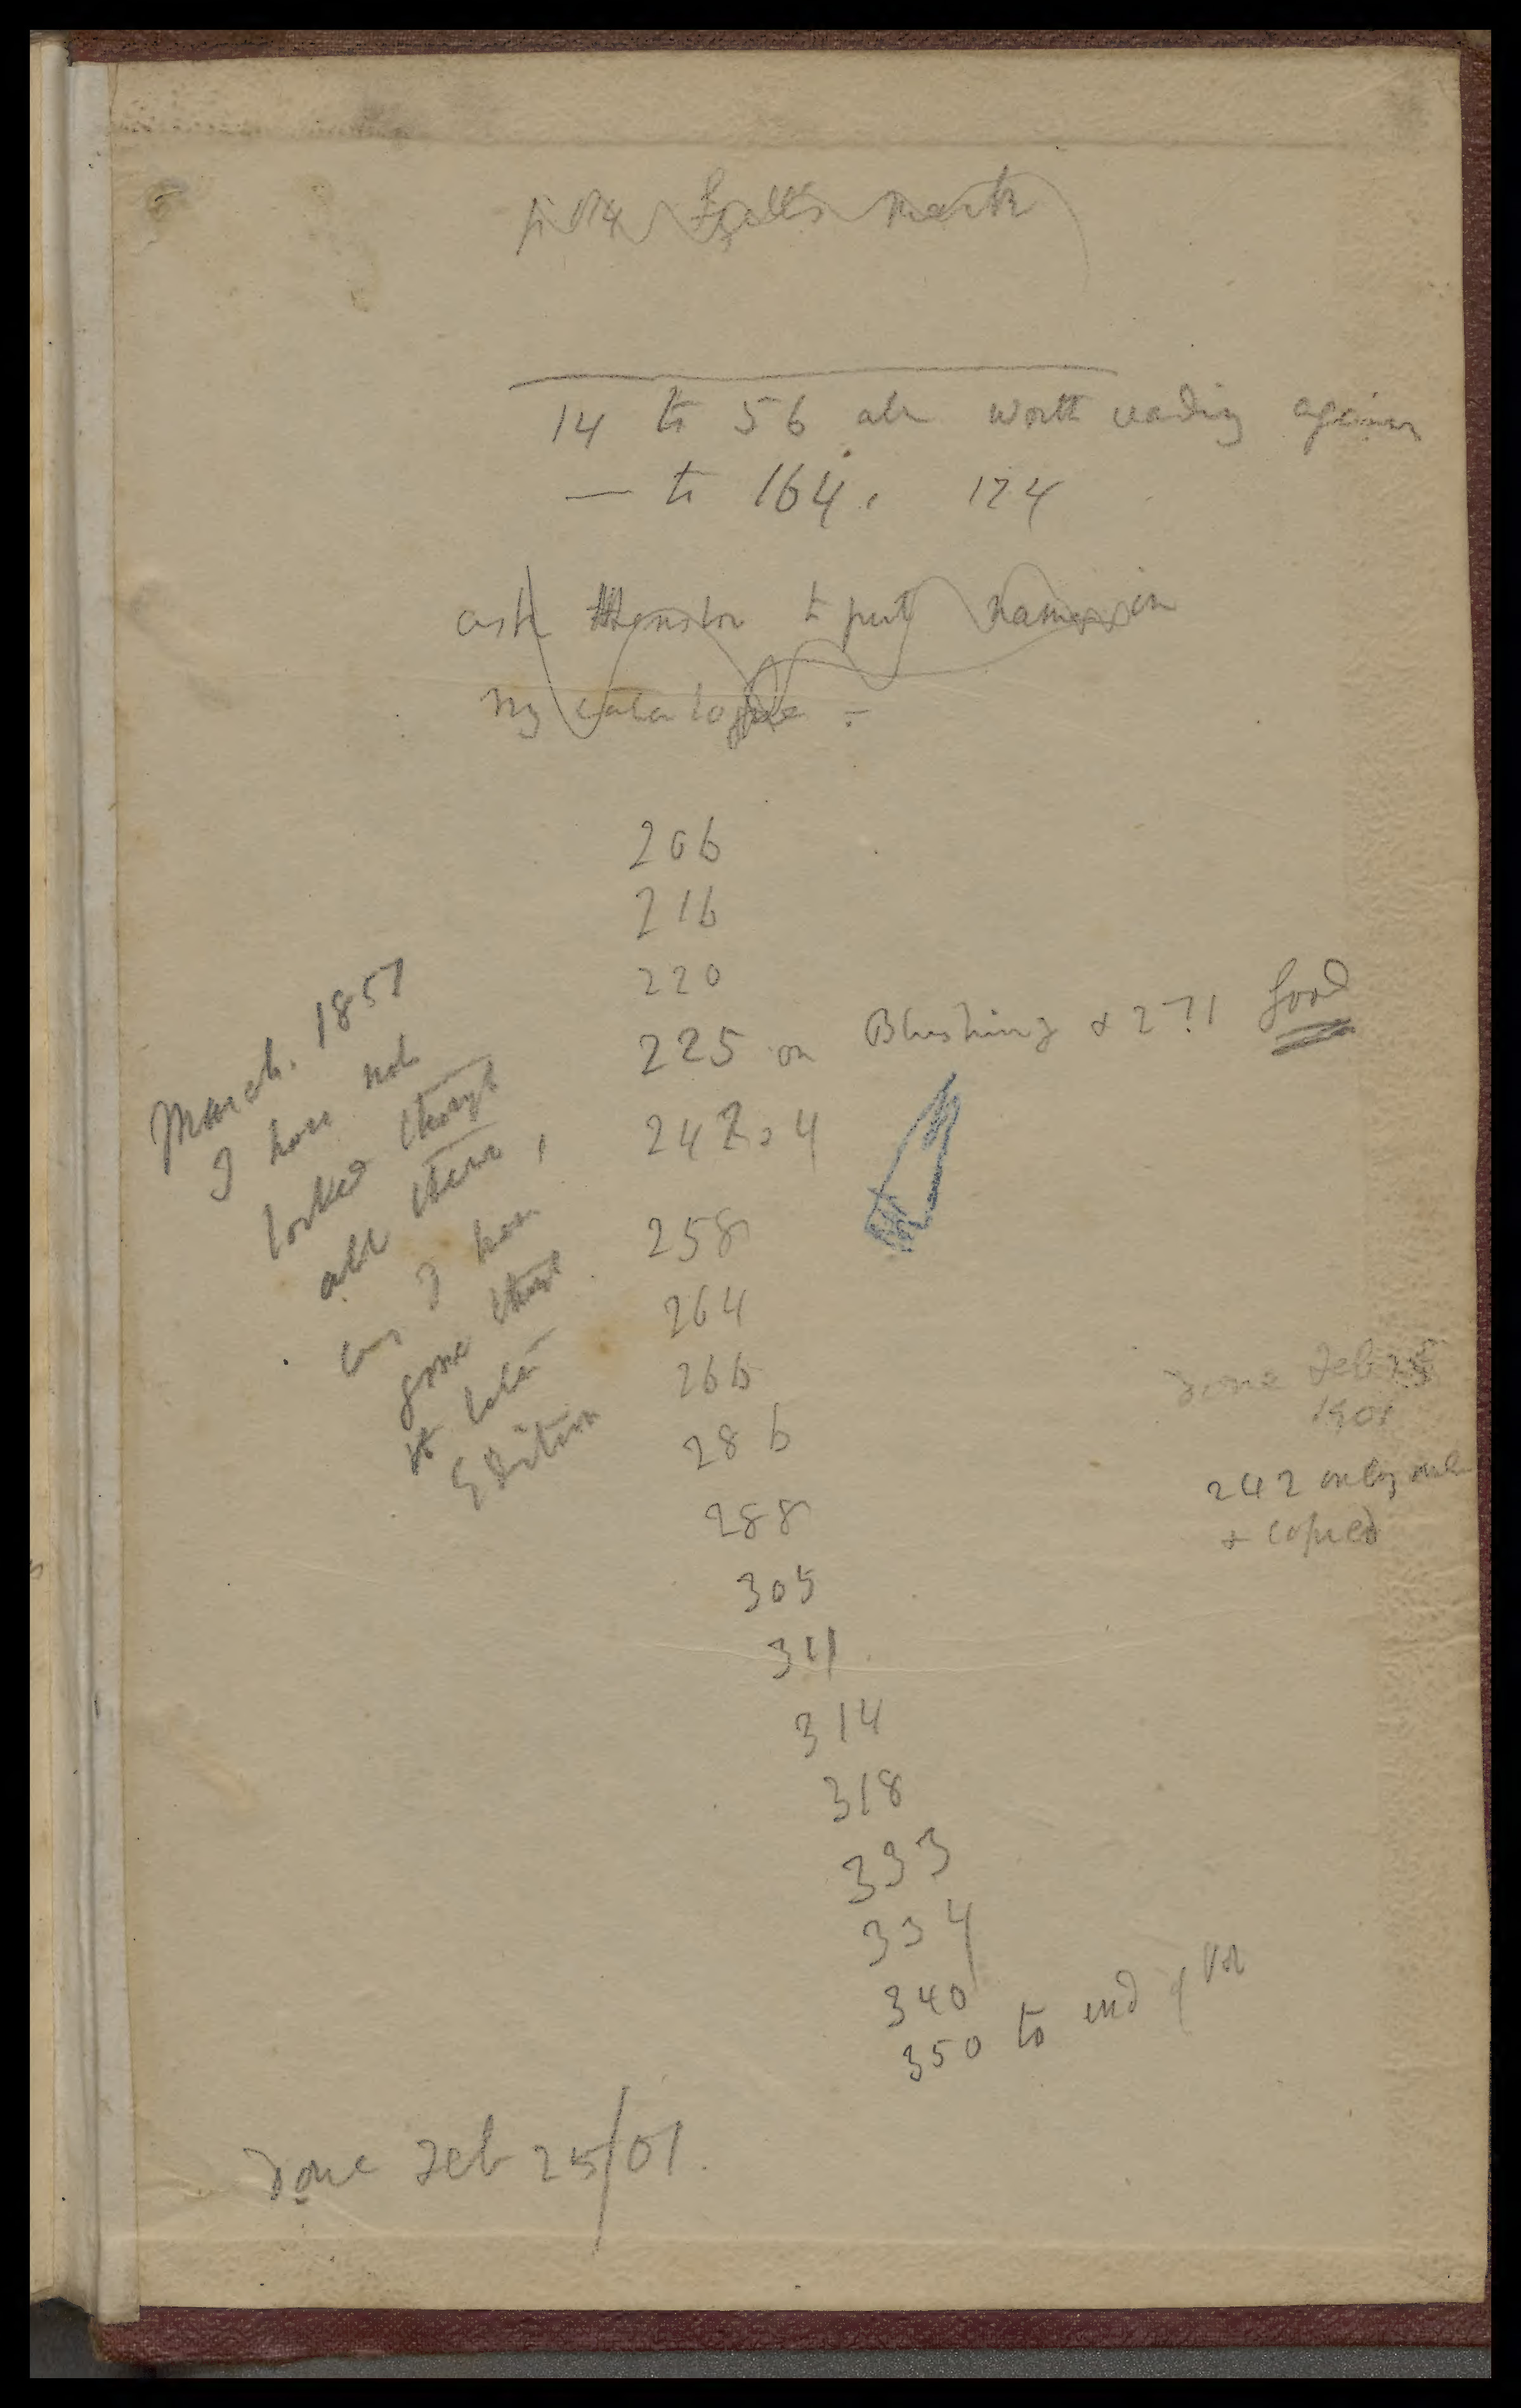 Lyell's mark
14 to 56 all worth reading again
— to 164, 174
ask Henslow to put names in
my catalogue —
206
216
220
225 on Blushing & 271 good
242, 4
258
264
266
286
288
305
311
314
318
333
334
340
350 to end of Vol
March. 1857
I have not
looked through
all these,
but I have
gone through
later
Edition
Done Feb 25
1901
242 only one
& copied
Done Feb 25/01.